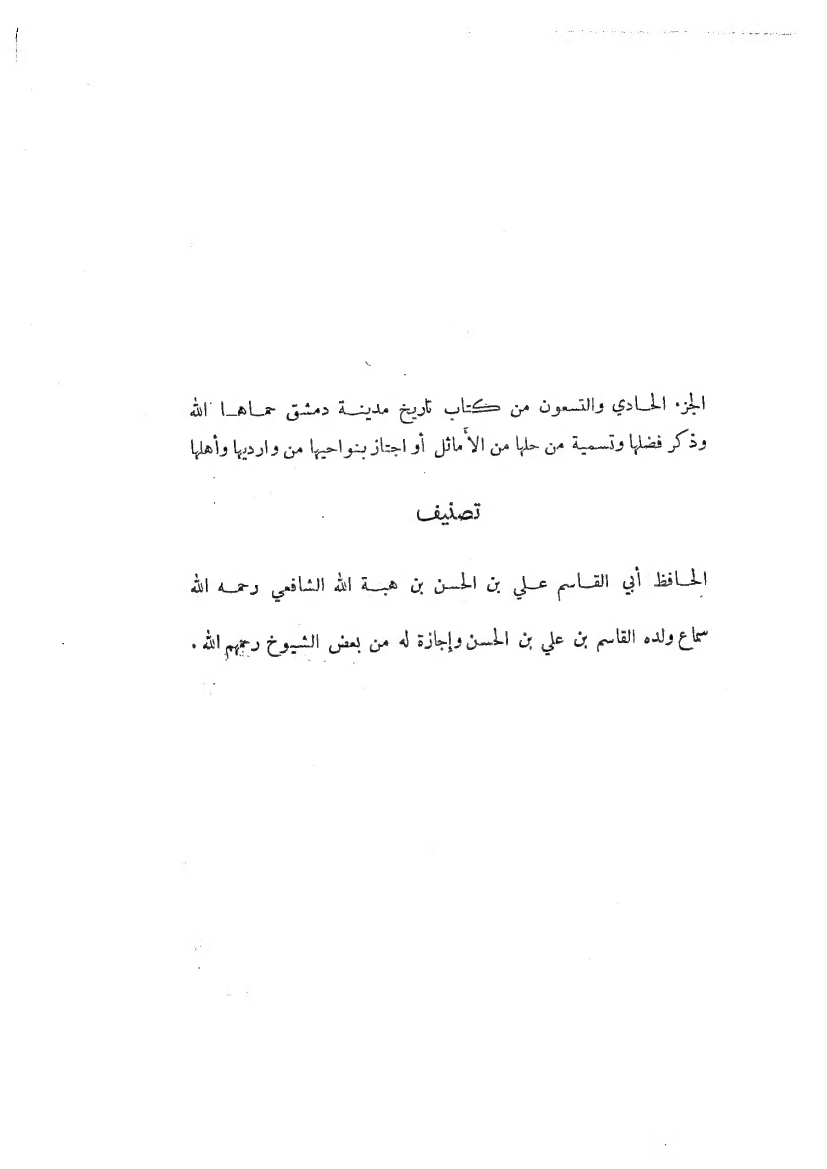 الجزء الحادي والتسعون من كتاب تاريخ مدينة دمشق حماها الله
وذكر فضلها وتسمية من حلها من الأماثل أو اجتاز بنواحيها من وارديها وأهلها
تصنيف
الحافظ أبي القاسم علي بن الحسن بن هبة الله الشافعي رحمه الله
سماع ولده القاسم بن علي بن الحسن وإجازة له من بعض الشيوخ رحمهم الله .